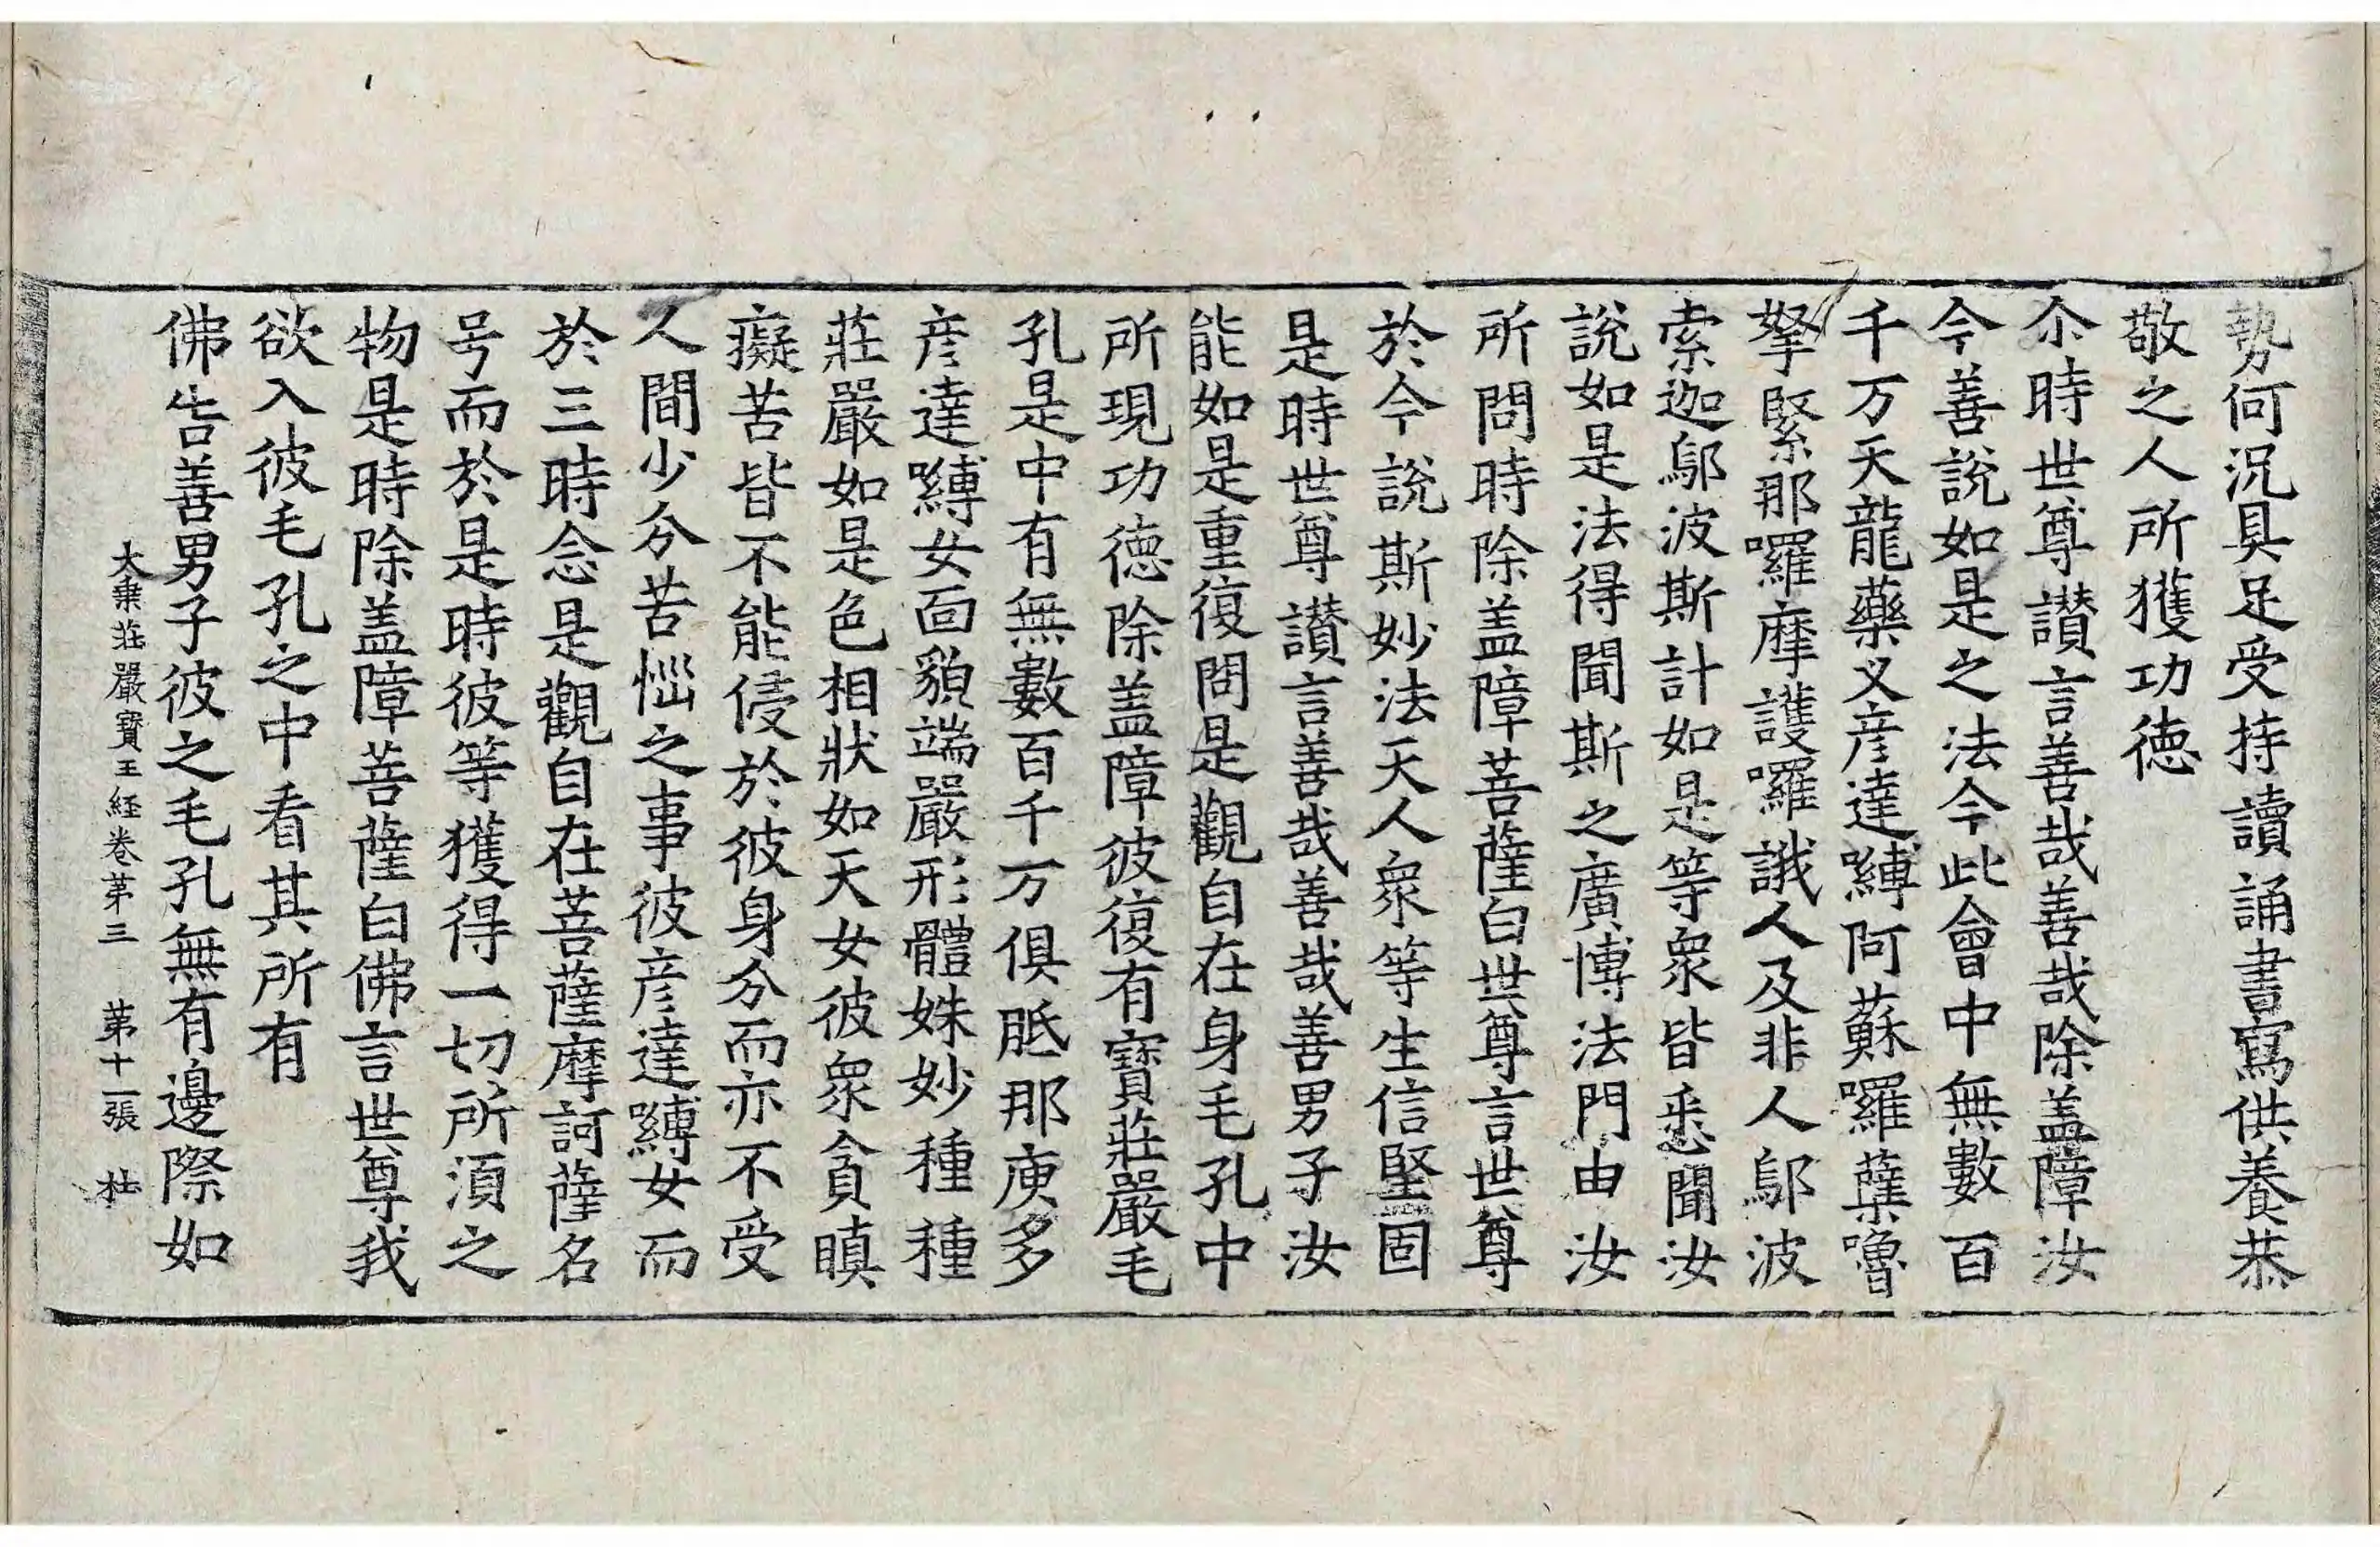 勢何況具足受持讀誦書寫供養恭
敬之人所獲功德
尒時世尊讃言善哉善哉除盖障汝
今善說如是之法今此會中無數百
千万天龍藥叉彦達嚩阿蘇囉蘗嚕
拏緊那囉摩護囉誐人及非人鄔波
索迦鄔波斯計如是等衆皆悉聞汝
說如是法得聞斯之廣博法門由汝
所問時除盖障菩薩白世尊言世尊
於今說斯妙法天人衆等生信堅固
是時世尊讃言善哉善哉善男子汝
能如是重復問是觀自在身毛孔中
所現功德除盖障彼復有寶莊嚴毛
孔是中有無數百千万俱胝那庾多
彦達嚩女面貌端嚴形體姝妙種種
莊嚴如是色相狀如天女彼衆貪瞋
癡苦皆不能侵於彼身分而亦不受
人間少分苦惱之事彼彦達嚩女而
於三時念是觀自在菩薩摩訶薩名
号而於是時彼等獲得一切所須之
物是時除盖障菩薩白佛言世尊我
欲入彼毛孔之中看其所有
佛告善男子彼之毛孔無有邊際如
大乗莊嚴寶王経卷苐三　苐十一張　杜